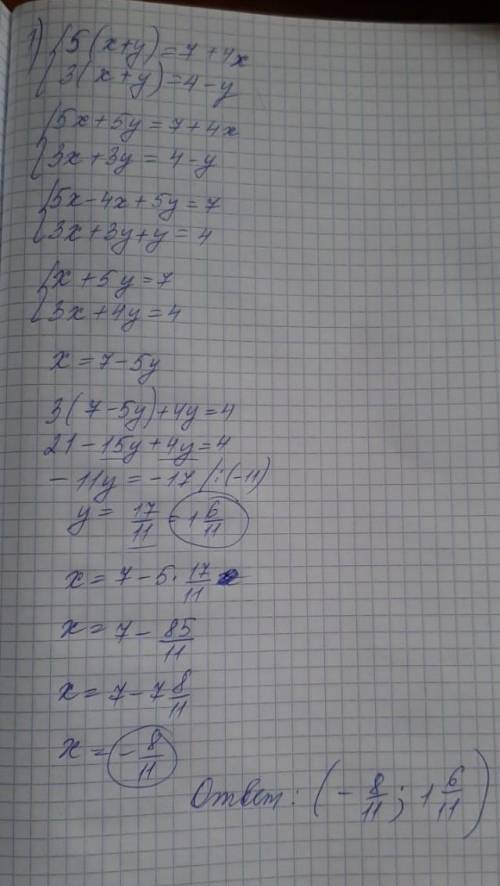 1) { 5(x+y) = 7+4x
3(x+y) = 4-y
{ 5x+5y = 7+4x
3x+3y = 4-y
{ 5x-4x+5y = 7
3x+3y+y = 4
{ x+5y = 7
3x+4y = 4
x = 7-5y
3(7-5y)+4y = 4
21-15y+4y = 4
-11y = -17 /:(-11)
y = 17/11 = 1 6/11
x = 7-5·17/11
x = 7-85/11
x = 7-7 8/11
x = -8/11
Ответ: (-8/11; 1 6/11)